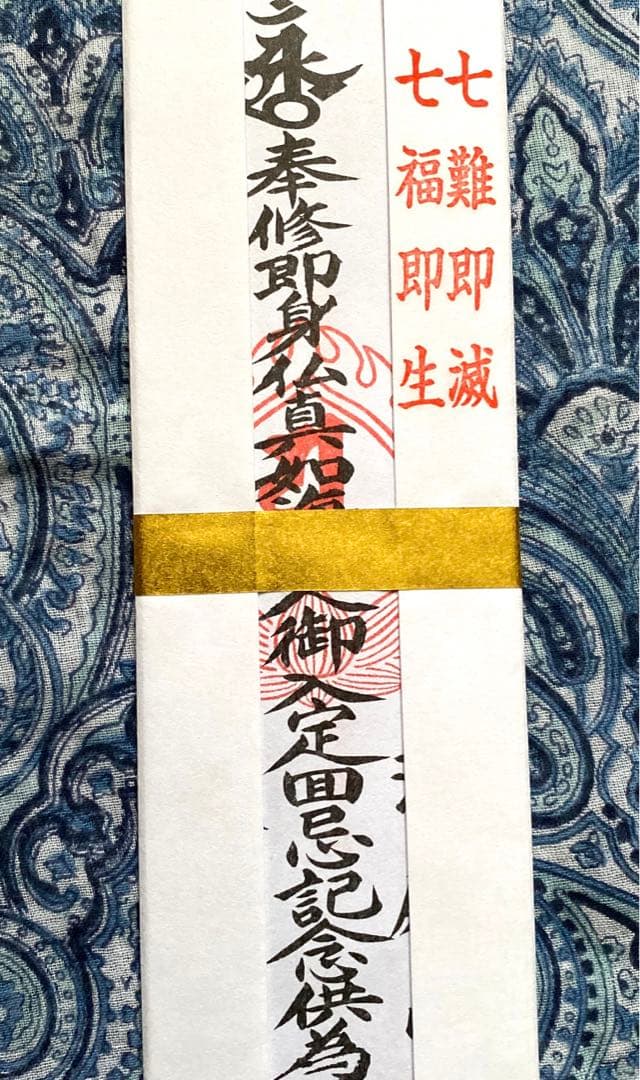 七難即滅
七福即生
奉修即身仏真如海
入御入定回忌記念供為